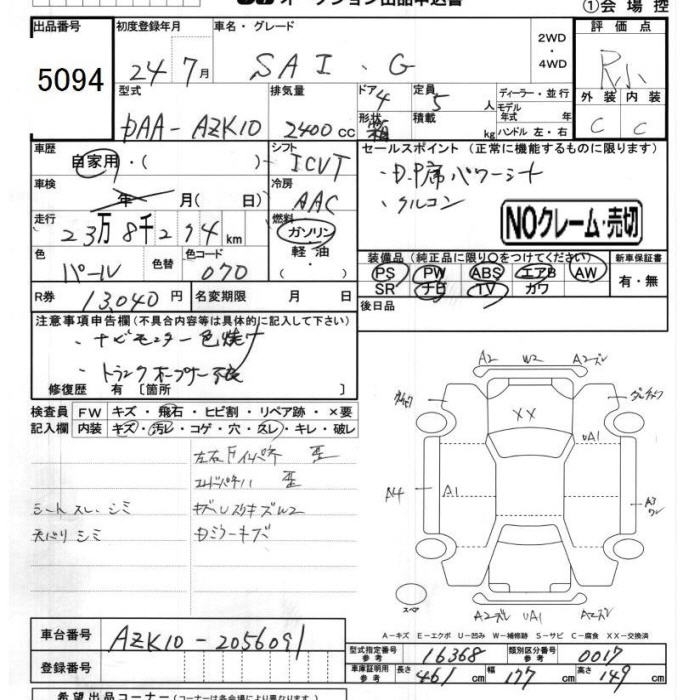 オークション出品申込書
①会場控
出品番号 5094
初度登録年月 24年7月
車名・グレード SAI・G
2WD・4WD
評価点 R小
外装 C 内装 C
型式 DAA-AZK10
排気量 2400cc
ドア 4
形状 箱
定員 5人
積載 kg
ディーラー・並行
モデル年式 年
ハンドル 左・右
車歴 自家用・( )
シフト ICVT
セールスポイント(正常に機能するものに限ります)
・D.P席パワーシート
・クルコン
車検 年 月( 日)
冷房 AAC
NOクレーム・売切
走行 23万8千294km
燃料 ガソリン・軽油・( )
色 パール
色替
色コード 070
装備品(純正品に限り○をつけてください)
PS PW ABS エアB AW
SR ナビ TV カワ
新車保証書 有・無
R券 13,040円
名変期限 月 日
後日品
注意事項申告欄(不具合内容等は具体的に記入して下さい)
・ナビモニター色焼け
・トランクオープナー不良
修復歴 有 〔箇所 〕
検査員記入欄
FW キズ・飛石・ヒビ割・リペア跡・×要
内装 キズ・汚レ・コゲ・穴・スレ・キレ・破レ
シートスレ、シミ
天バリシミ
A2 W2 A2
XX
UA1
A4 A1
A3
スペア
A2 UA1
A-キズ E-エクボ U-凹み W-補修跡 S-サビ C-腐食 XX-交換済
車台番号 AZK10-2056091
登録番号
型式指定番号 参考 16368
類別区分番号 参考 0017
車庫証明用 参考 長さ 461cm 幅 177cm 高さ 149cm
希望出品コーナー(コーナーは各会場により異なります)